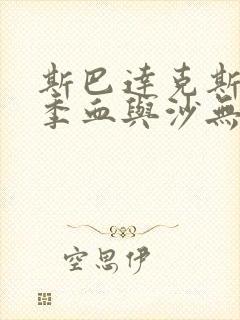 斯巴達克斯
季血與沙無
空思伊